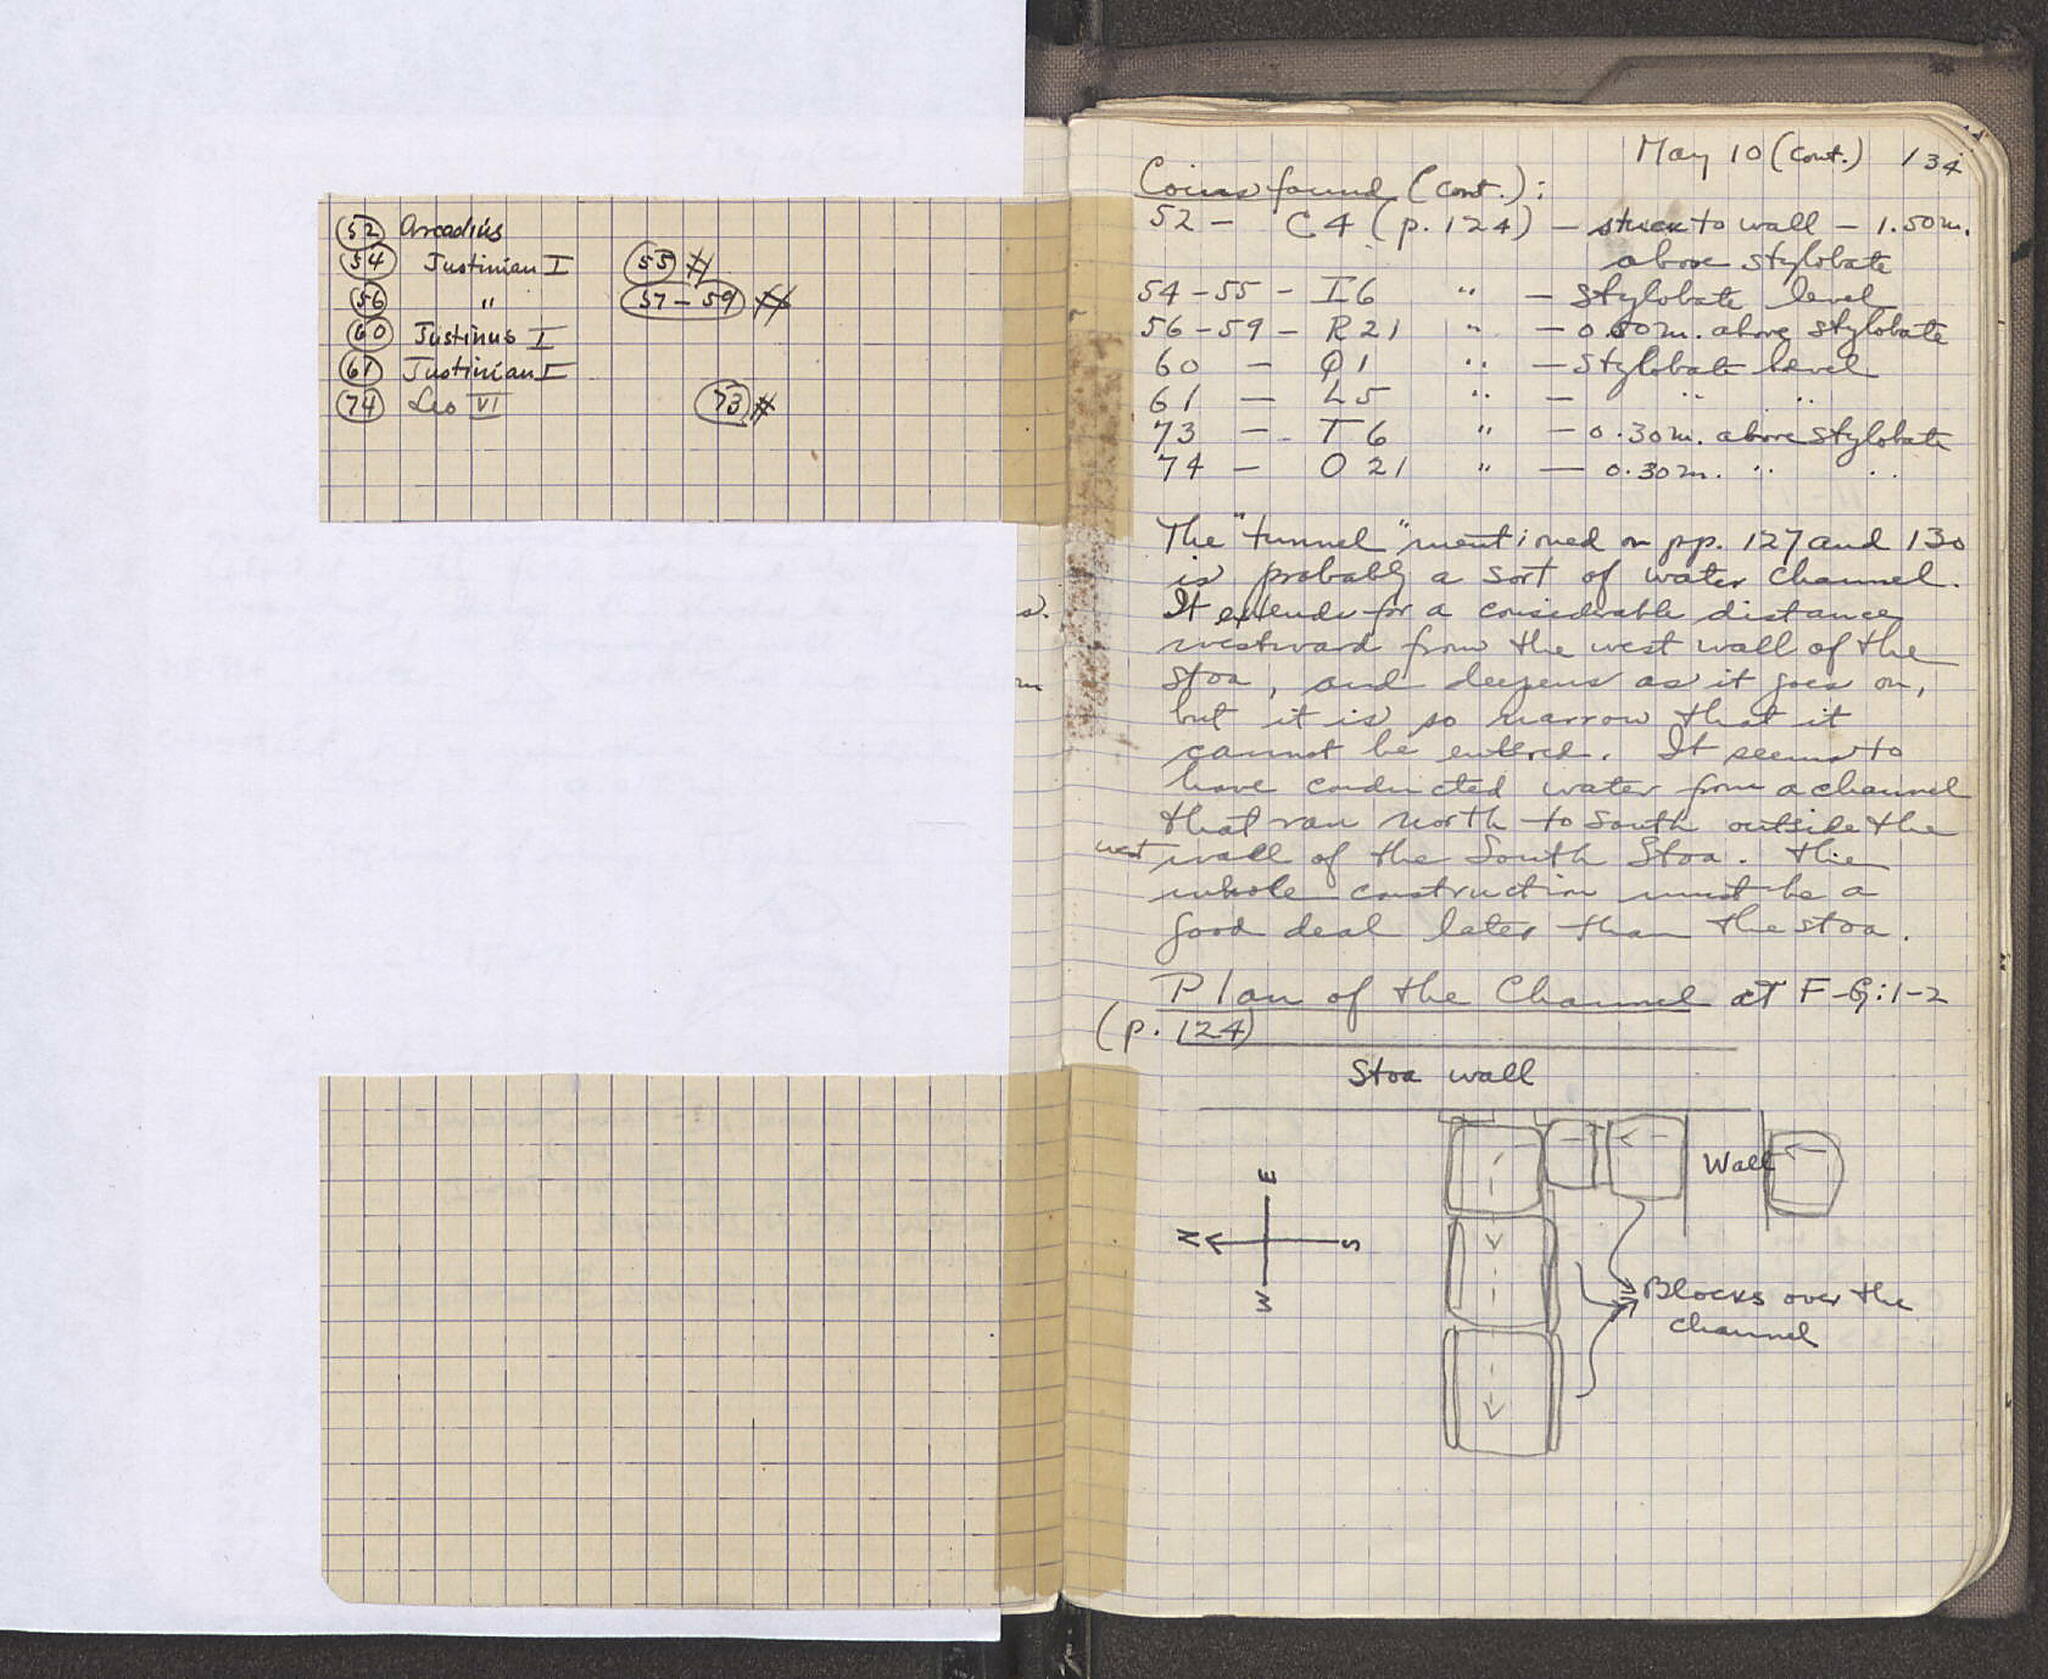 (52) Arcadius
(54) Justinian I (55) #
(56) " (57-59) #
(60) Justinus I
(61) Justinian I
(74) Leo VI (73) #
s.
m
May 10 (cont.) 134
Coins found (cont.):
52 - C4 (p. 124) - stuck to wall - 1.50m.
above stylobate
54-55 - I6 " - stylobate level
56-59 - R21 " - 0.80m. above stylobate
60 - Q1 " - stylobate level
61 - L5 " - " "
73 - T6 " - 0.30m. above stylobate
74 - O21 " - 0.30m. " "
The "tunnel" mentioned on pp. 127 and 130
is probably a sort of water channel.
It extends for a considerable distance
westward from the west wall of the
stoa, and deepens as it goes on,
but it is so narrow that it
cannot be entered. It seems to
have conducted water from a channel
that ran north to south outside the
west wall of the South Stoa. The
whole construction must be a
good deal later than the stoa.
Plan of the Channel at F-G:1-2
(p. 124)
Stoa wall
Wall
E
N
S
W
Blocks over the
channel